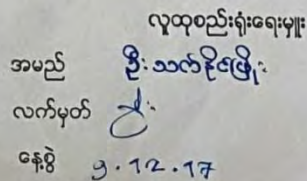 လူထုစည်းရုံးရေးမှူး
အမည် ဦးသက်နိုင်ဖြိုး
လက်မှတ်
နေ့စွဲ 9.12.17